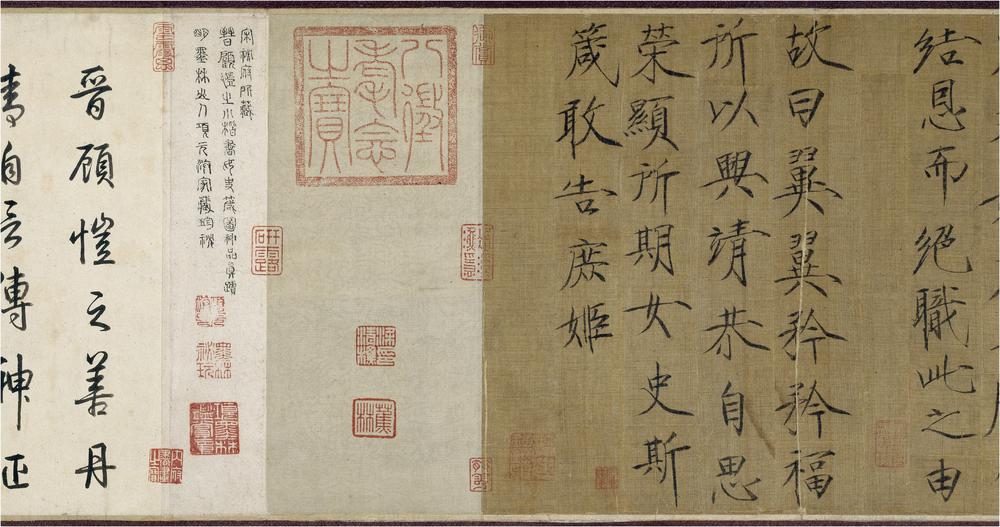 結恩而絕職此之由
故曰翼翼矜矜福
所以興靖恭自思
榮顯所期女史斯
箴敢告庶姬
八徵耄念之寶
蕉林
研露
宋秘府所藏
晉顧愷之小楷書女史箴圖神品真蹟
明墨林山人項元汴家藏珍秘
墨林秘玩
晉顧愷之善丹
青自言傳神正